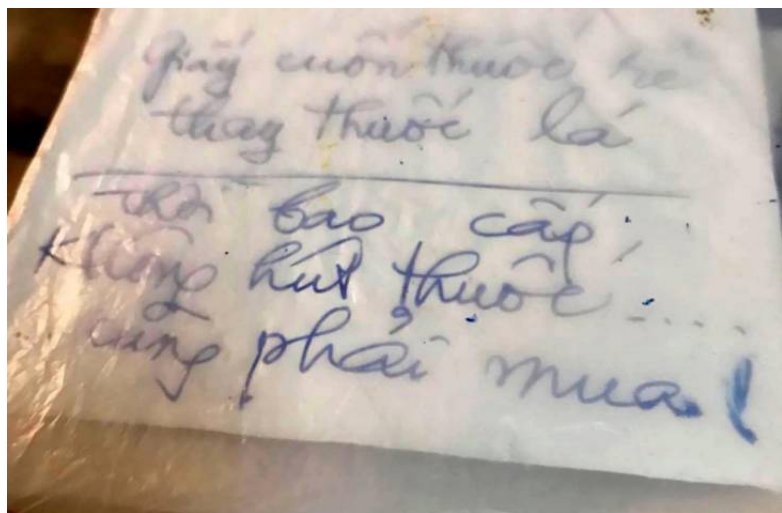 giấy cuốn thuốc rê
thay thuốc lá
thời bao cấp,
Không hút thuốc.....
cũng phải mua!